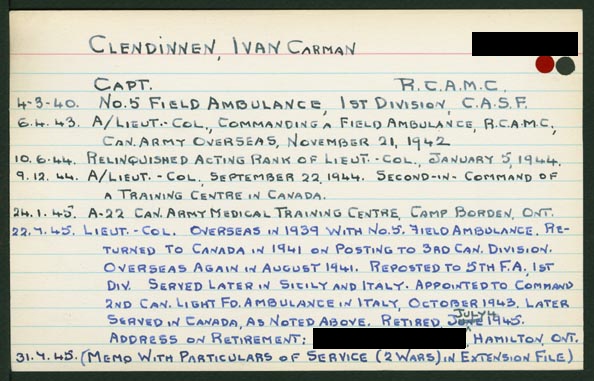 CLENDINNEN, IVAN CARMAN
CAPT. R.C.A.M.C.
4-3-40. NO.5 FIELD AMBULANCE, 1ST DIVISION, C.A.S.F.
6.4.43. A/LIEUT.-COL., COMMANDING A FIELD AMBULANCE, R.C.A.M.C.,
CAN. ARMY OVERSEAS, NOVEMBER 21, 1942
10.6.44. RELINQUISHED ACTING RANK OF LIEUT.-COL., JANUARY 5, 1944.
9.12.44. A/LIEUT.-COL, SEPTEMBER 22, 1944. SECOND-IN-COMMAND OF
A TRAINING CENTRE IN CANADA.
24.1.45. A-22 CAN. ARMY MEDICAL TRAINING CENTRE, CAMP BORDEN, ONT.
22.7.45. LIEUT.-COL. OVERSEAS IN 1939 WITH NO.5. FIELD AMBULANCE. RE-
TURNED TO CANADA IN 1941 ON POSTING TO 3RD CAN. DIVISION.
OVERSEAS AGAIN IN AUGUST 1941. REPOSTED TO 5TH F.A., 1ST
DIV. SERVED LATER IN SICILY AND ITALY. APPOINTED TO COMMAND
2ND CAN. LIGHT FD. AMBULANCE IN ITALY, OCTOBER 1943. LATER
SERVED IN CANADA, AS NOTED ABOVE. RETIRED, JULY 4 JUNE 1945.
ADDRESS ON RETIREMENT: , HAMILTON, ONT.
31.7.45. (MEMO WITH PARTICULARS OF SERVICE (2 WARS) IN EXTENSION FILE)